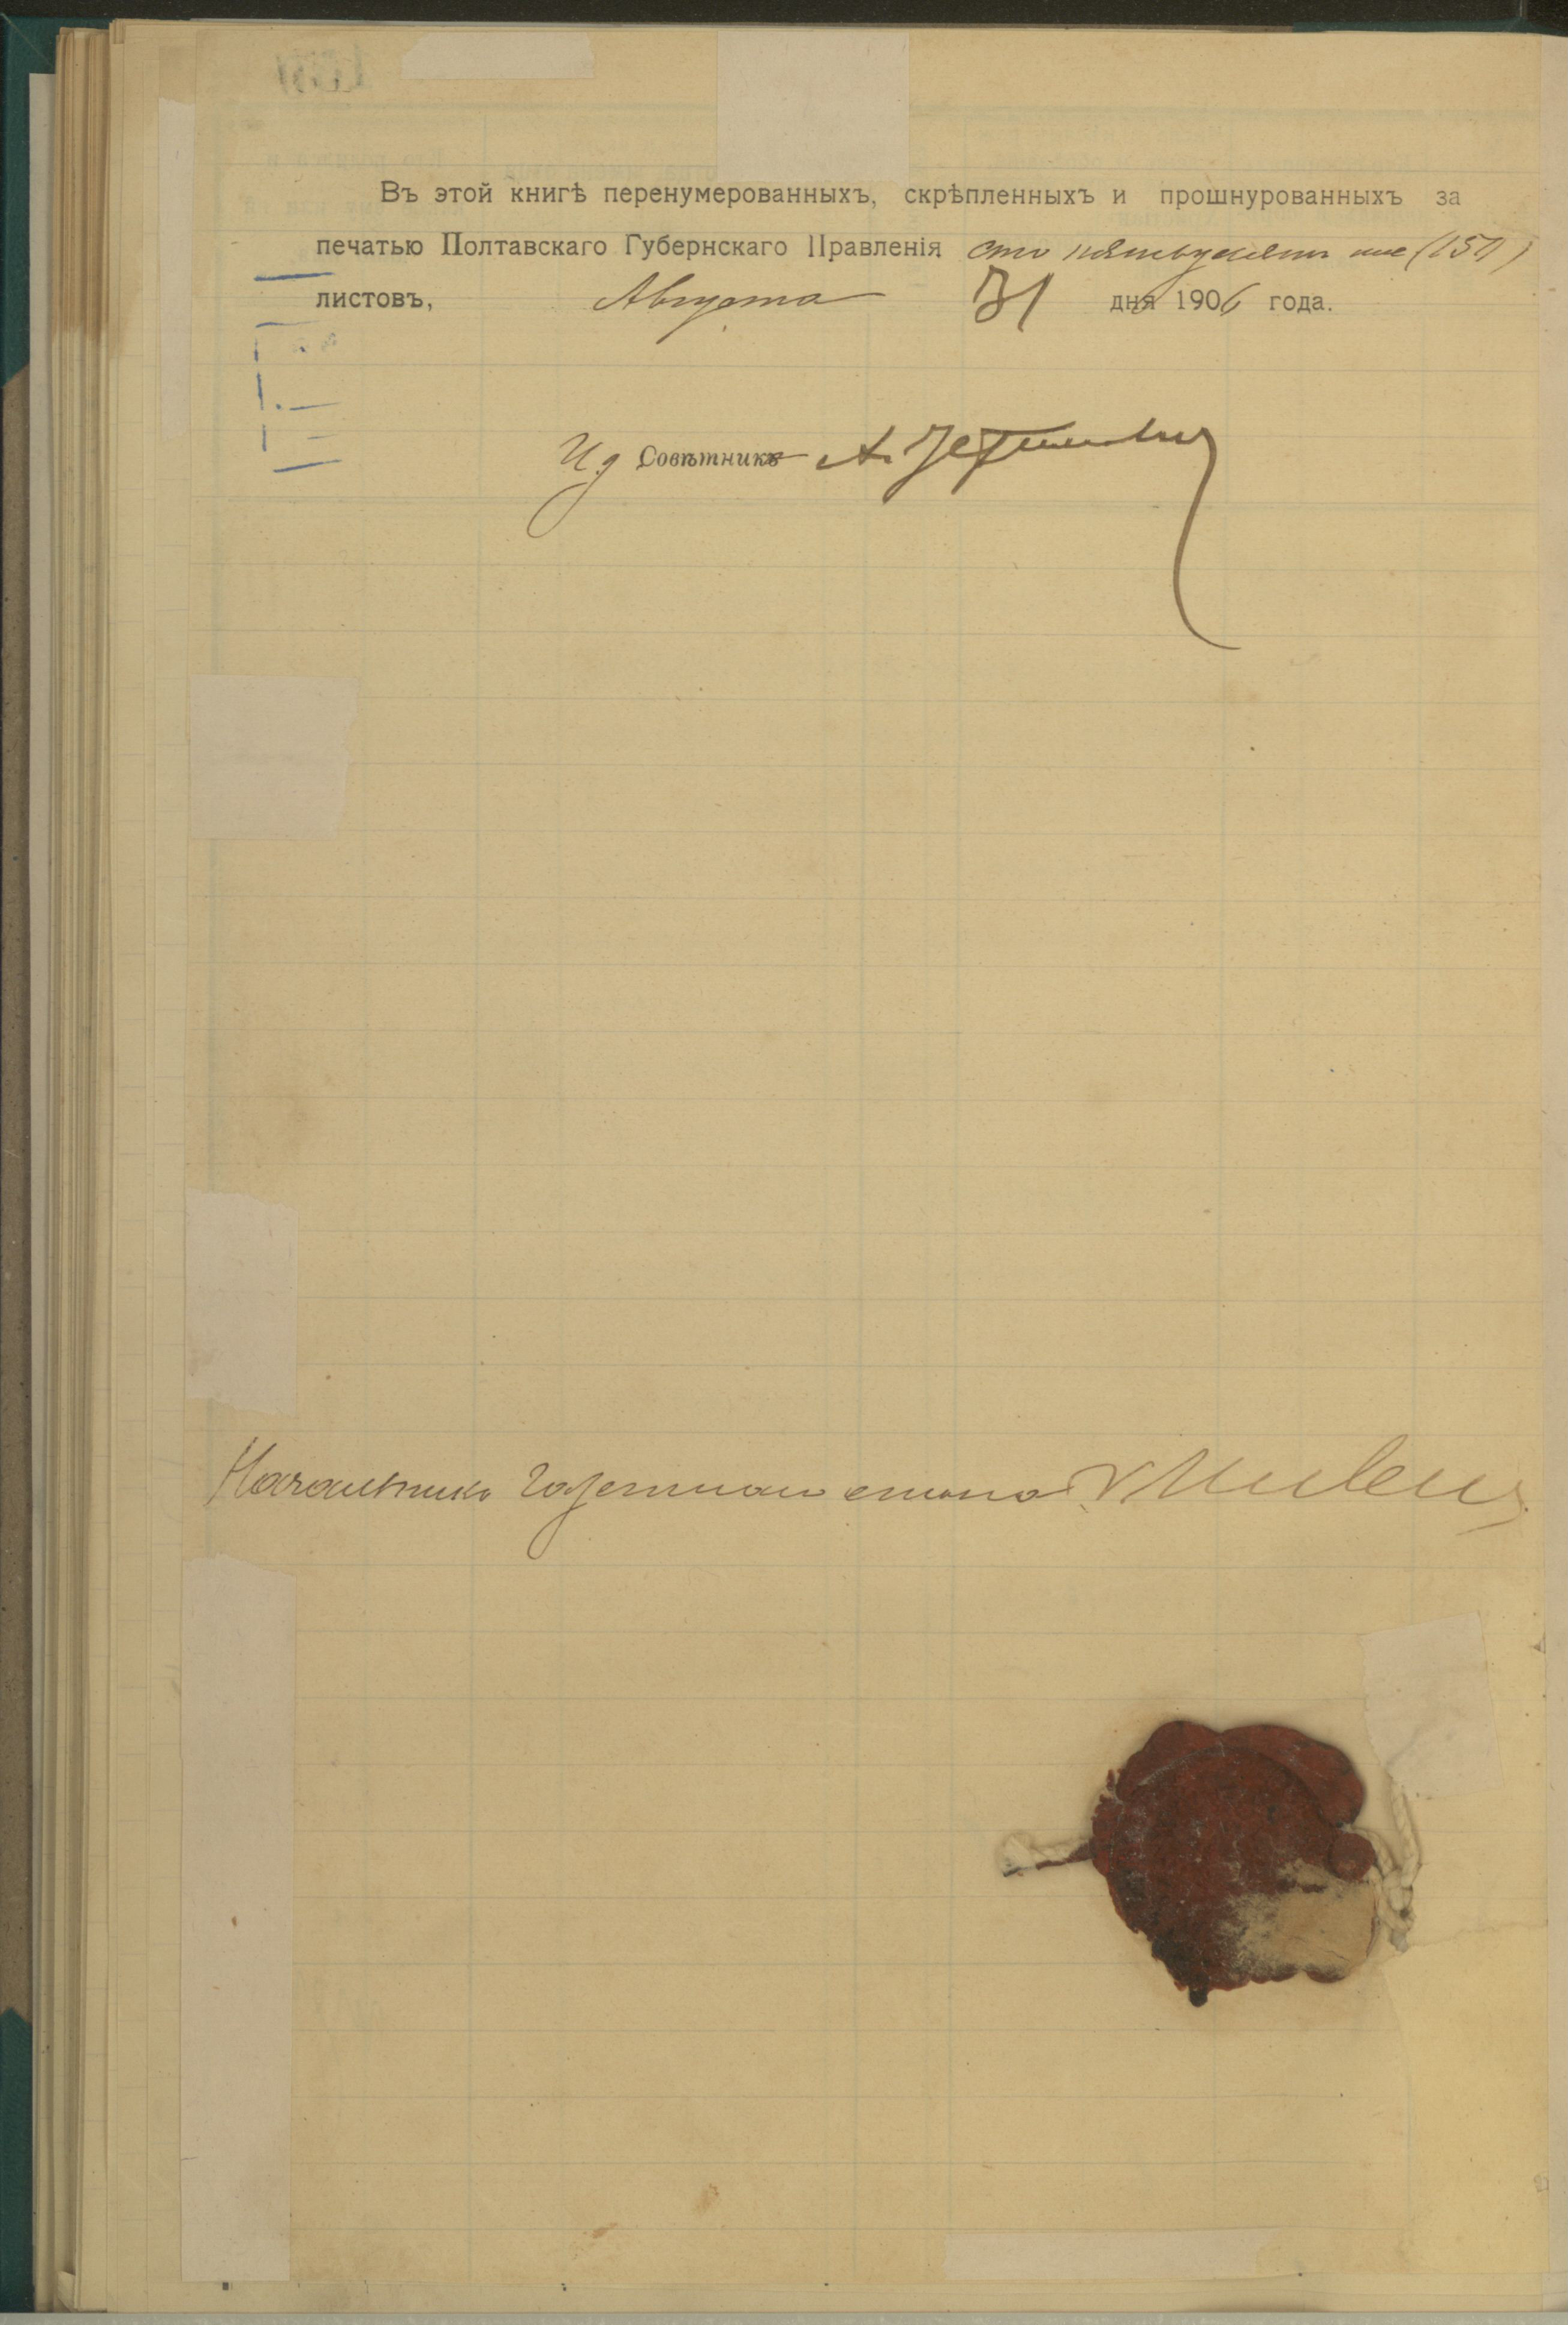 Въ этой книгѣ перенумерованныхъ, скрѣпленныхъ и прошнурованныхъ за
печатью Полтавскаго Губернскаго Правленія сто пятьдесятъ
листовъ, Августа 31 дня 1906 года.
И. д Совѣтника А.
Начальникъ Газетнаго стола